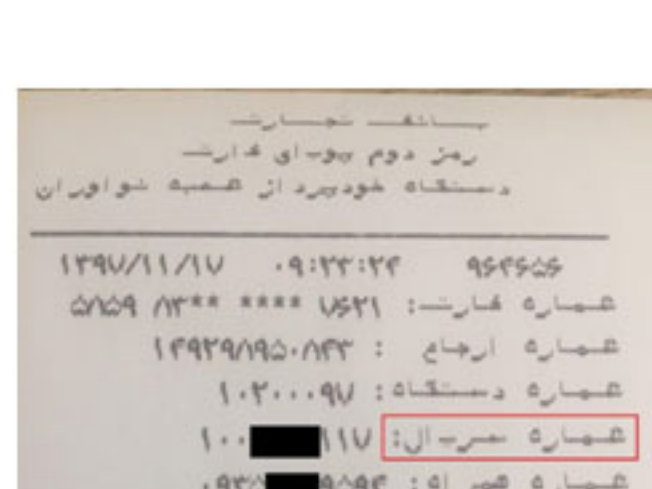 بانک تجارت
رمز دوم پویای کارت
دستگاه خودپرداز شعبه نواوران
۱۳۹۷/۱۱/۱۷ ۰۹:۲۳:۲۴ ۹۶۴۶۵۶
شماره کارت: ۵۸۵۹ ۸۳** **** ۷۶۲۱
شماره ارجاع : ۱۴۹۲۹۸۹۵۰۸۴۳
شماره دستگاه: ۱۰۲۰۰۰۹۷
شماره سریال: ۱۰۰ ۱۱۷
شماره همراه: ۰۹۳۵ ۹۵۹۴